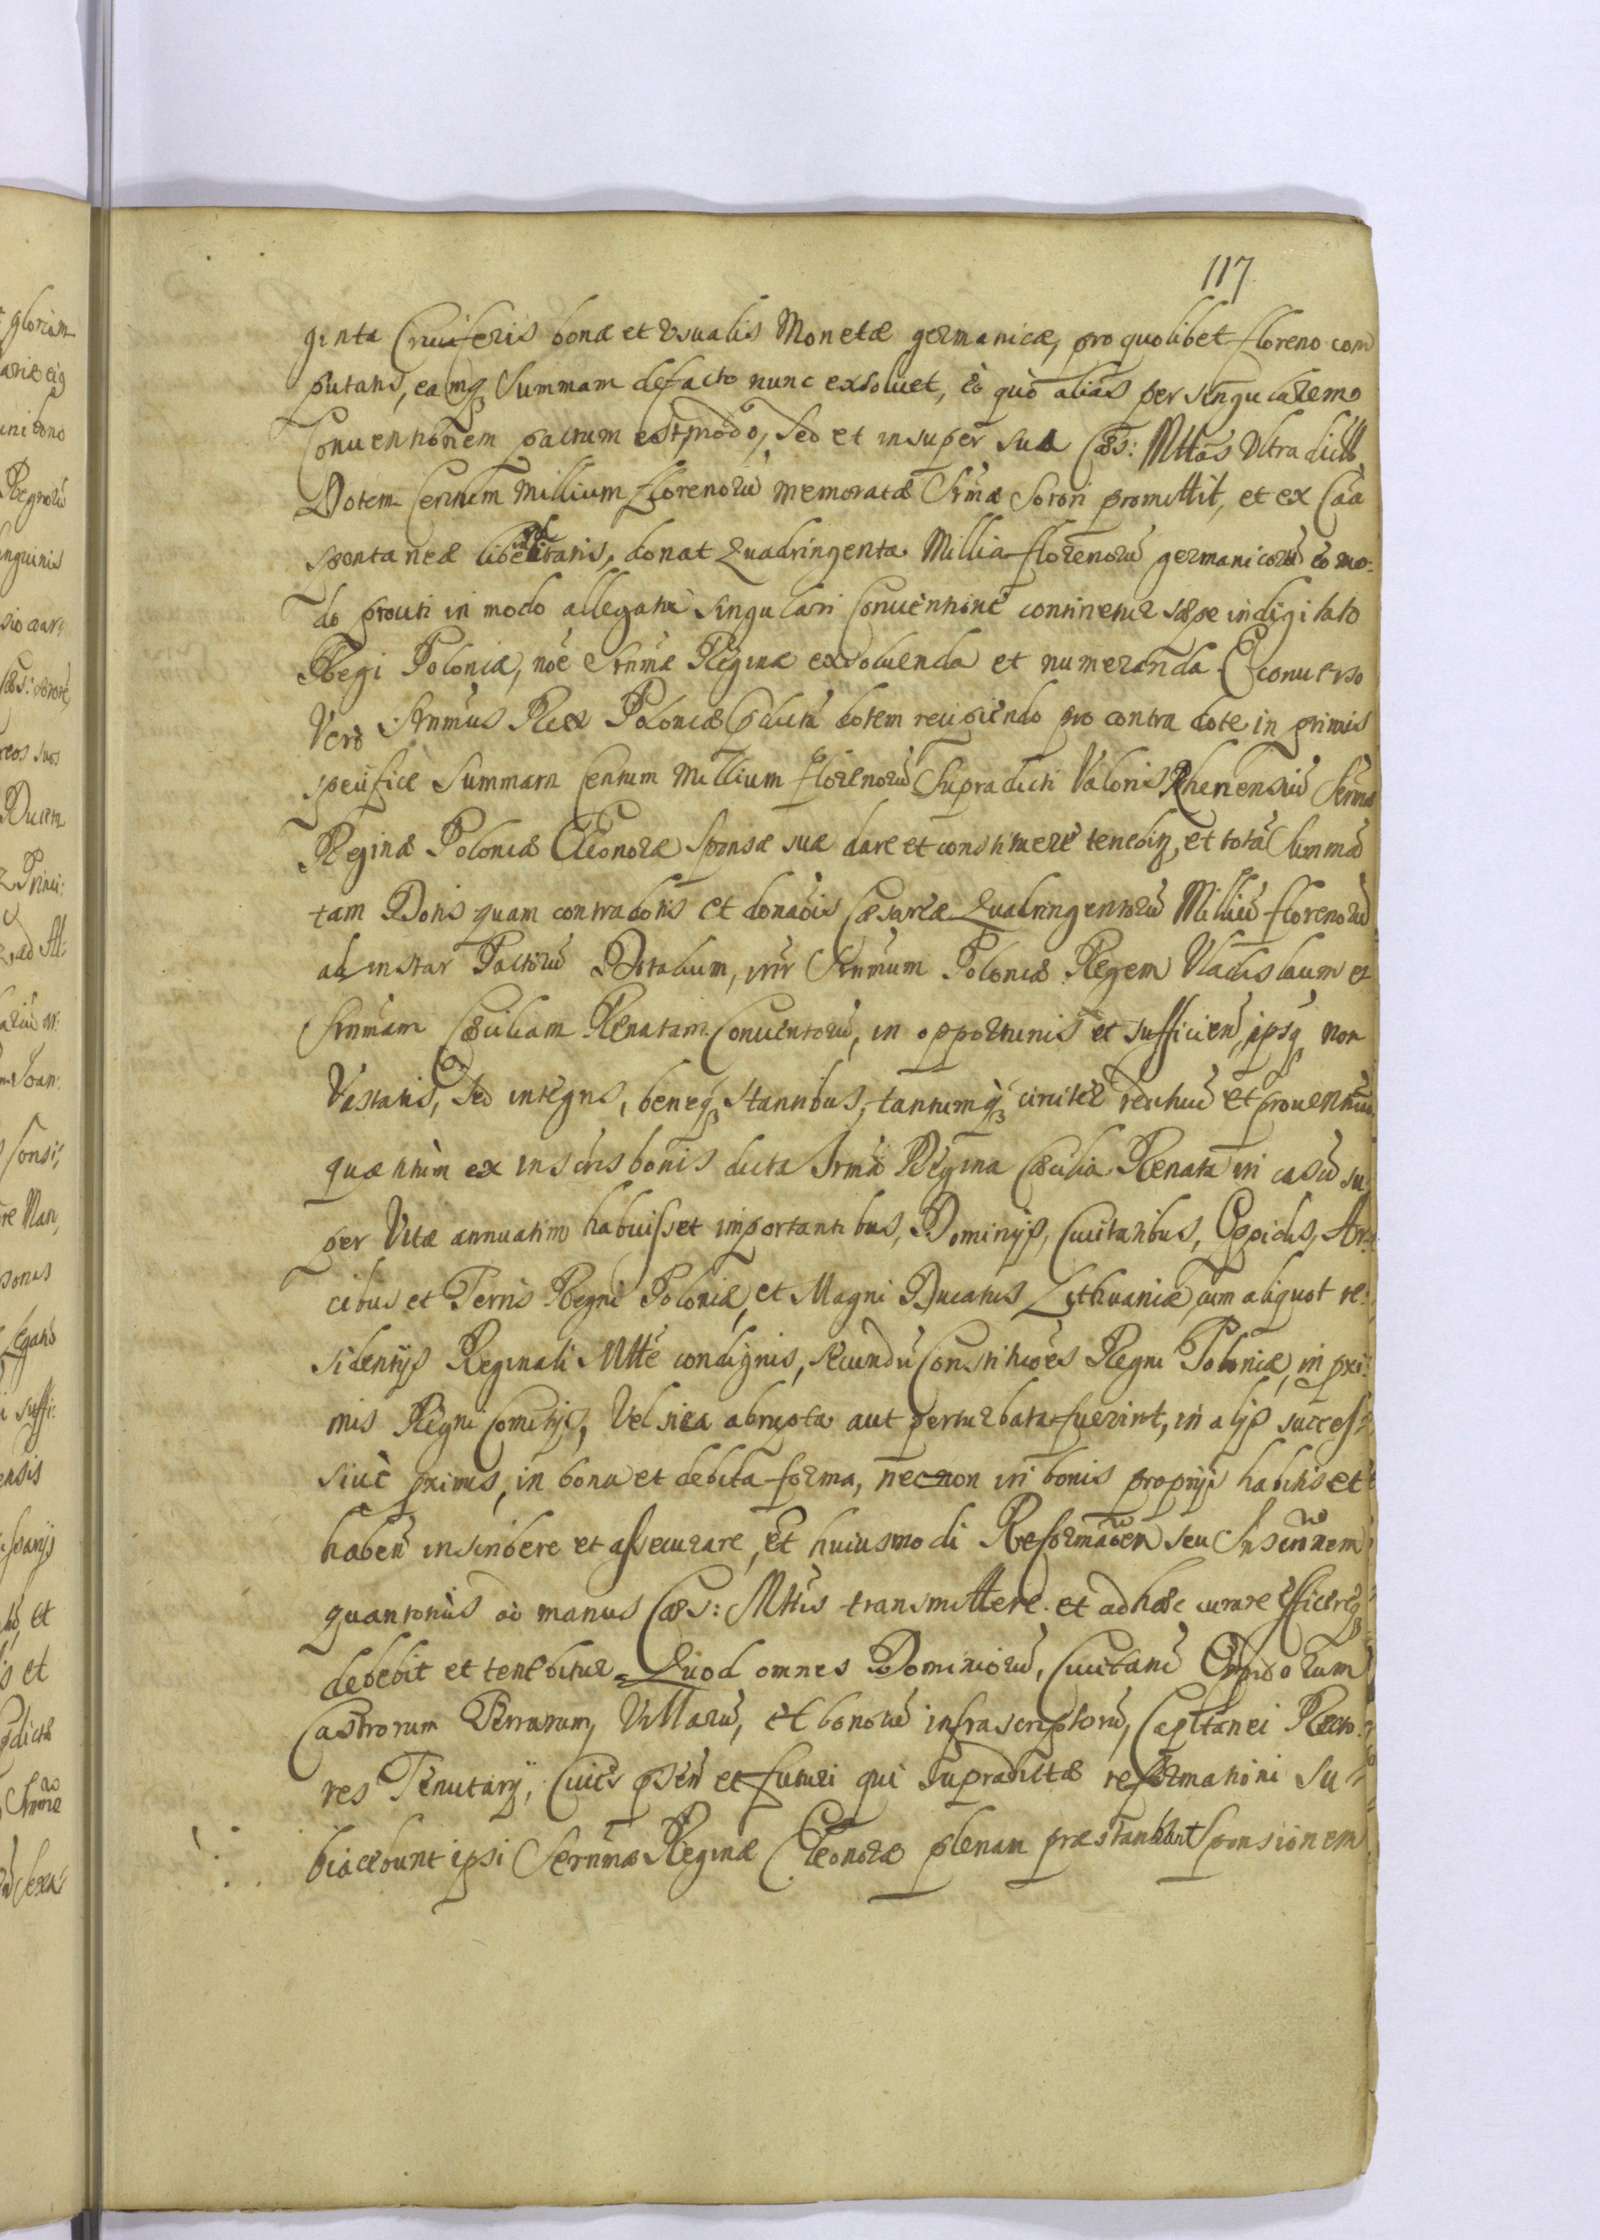 117
ginta Cruciferis bonæ et usualis Monetæ germanicæ, pro quolibet floreno com
putatis, eamq3 Summam defacto nunc exsoluet, eò quò alias per singularem
Conuentionem pactum est modo, Sed et insuper sua Cæs: Mttas Ultra dictā
Dotem Centum Millium florenorū memoratæ Srmæ Sorori promittit, et ex Caā
spontaneæ liberalitatis, donat Quadringenta Millia florenorū germanicorū eo mo-
do prouti in modo allegata singulari Conuentione continetur sæpe indigitato
Regi Poloniæ, noē Srnmæ Reginæ exsoluenda et numeranda E conuerso
Verò Srnmus Rex Poloniæ dictā dotem recipiendo pro contra dote in primis
specificè Summam Centum Millium florenorū Supradicti Valoris Rhenensiū Sernmæ
Reginæ Poloniæ Eleonoræ Sponsæ suæ dare et constituere tenebir, et totā Summā
tam Dotis quam contradotis et donaōis Cæsareæ Quadringentorū Milliū florenorū
ad instar Pactorū Dotalium, intr Srnmum Poloniæ Regem Vladislaum et
Srnmam Cæciliam Renatam Conuentorū, in opportunis et sufficien, ipsq3 non
Vastatis, sed integris, beneq3 stantibus, tantumq3 circiter redituū et prouentuū
quantum ex inscris bonis dicta Srmā Regina Cæcilia Renata in casū su
per Vitæ annuatim habuisset importantibus, Dominijs, Ciuitatibus, Oppidis, Ar-
cibus et Terris Regni Poloniæ, et Magni Ducatus Lithuaniæ, cum aliquot re-
sidentijs Reginali Mtte condignis, secundū Constituōes Regni Poloniæ, in pri-
mis Regni Comitijs, Vel si ea abrupta aut perturbata fuerint, in alijs succes-
siuè primis, in bona et debita forma, necnon in bonis proprijs habitis et
haben inscribere et assecurare, et huiusmodi Reformaōem seu Inscriōnem
quantotiùs ad manus Cæs: Mttis transmittere et ad hæc curare efficereq3
debebit et tenebitur. Quod omnes Dominiorū, Ciuitatū Oppidorum
Castrorum Terrarum, Villarū, et bonorū infrascriptorū, Capitanei Recto-
res Tenutarij, Ciues psen et futuri qui supradictæ reformationi su-
biacebunt ipsi Sernmæ Reginæ Eleonoræ plenam præstabunt sponsionem